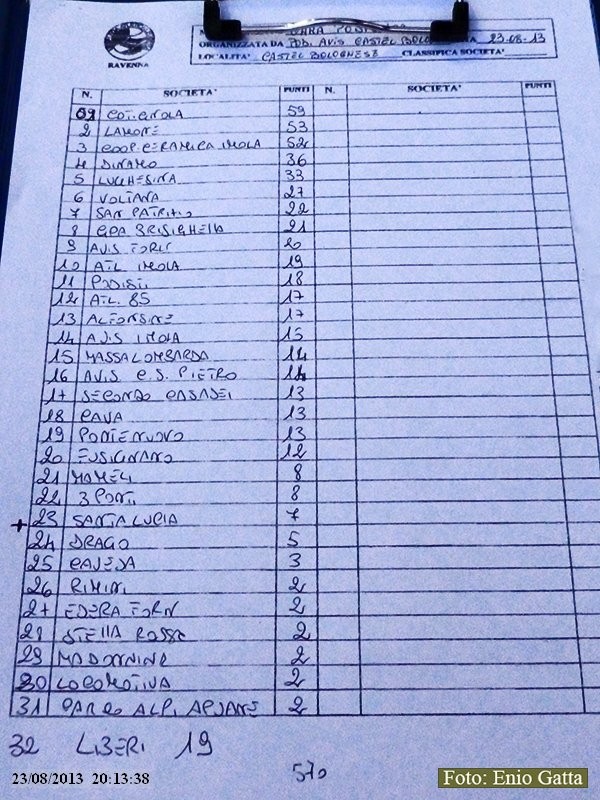 RAVENNA
ORGANIZZATA DA POD. AVIS CASTEL BOLOGNESE 23-08-13
LOCALITA' CASTEL BOLOGNESE CLASSIFICA SOCIETA'
N. SOCIETA' PUNTI N. SOCIETA' PUNTI
1 COTIGNOLA 59
2 LAMONE 53
3 COOP. CERAMICA IMOLA 52
4 DINAMO 36
5 LUGHESINA 33
6 VOLTANA 27
7 SAN PATRIZIO 22
8 GPA BRISIGHELLA 21
9 AVIS FORLI 20
10 ATL IMOLA 19
11 PODISTI 18
12 ATL. 85 17
13 ALFONSINE 17
14 AVIS IMOLA 15
15 MASSALOMBARDA 14
16 AVIS C.S. PIETRO 14
17 SECONDO CASADEI 13
18 CAVA 13
19 PONTENUOVO 13
20 FUSIGNANO 12
21 MAMELI 8
22 3 PONTI 8
+ 23 SANTA LUCIA 7
24 DRAGO 5
25 CAVEJA 3
26 RIMINI 2
27 EDERA FORLI 2
28 STELLA ROSSA 2
29 MADONNINA 2
30 LOCOMOTIVA 2
31 PARCO ALPI APUANE 2
32 LIBERI 19
570
23/08/2013 20:13:38
Foto: Enio Gatta